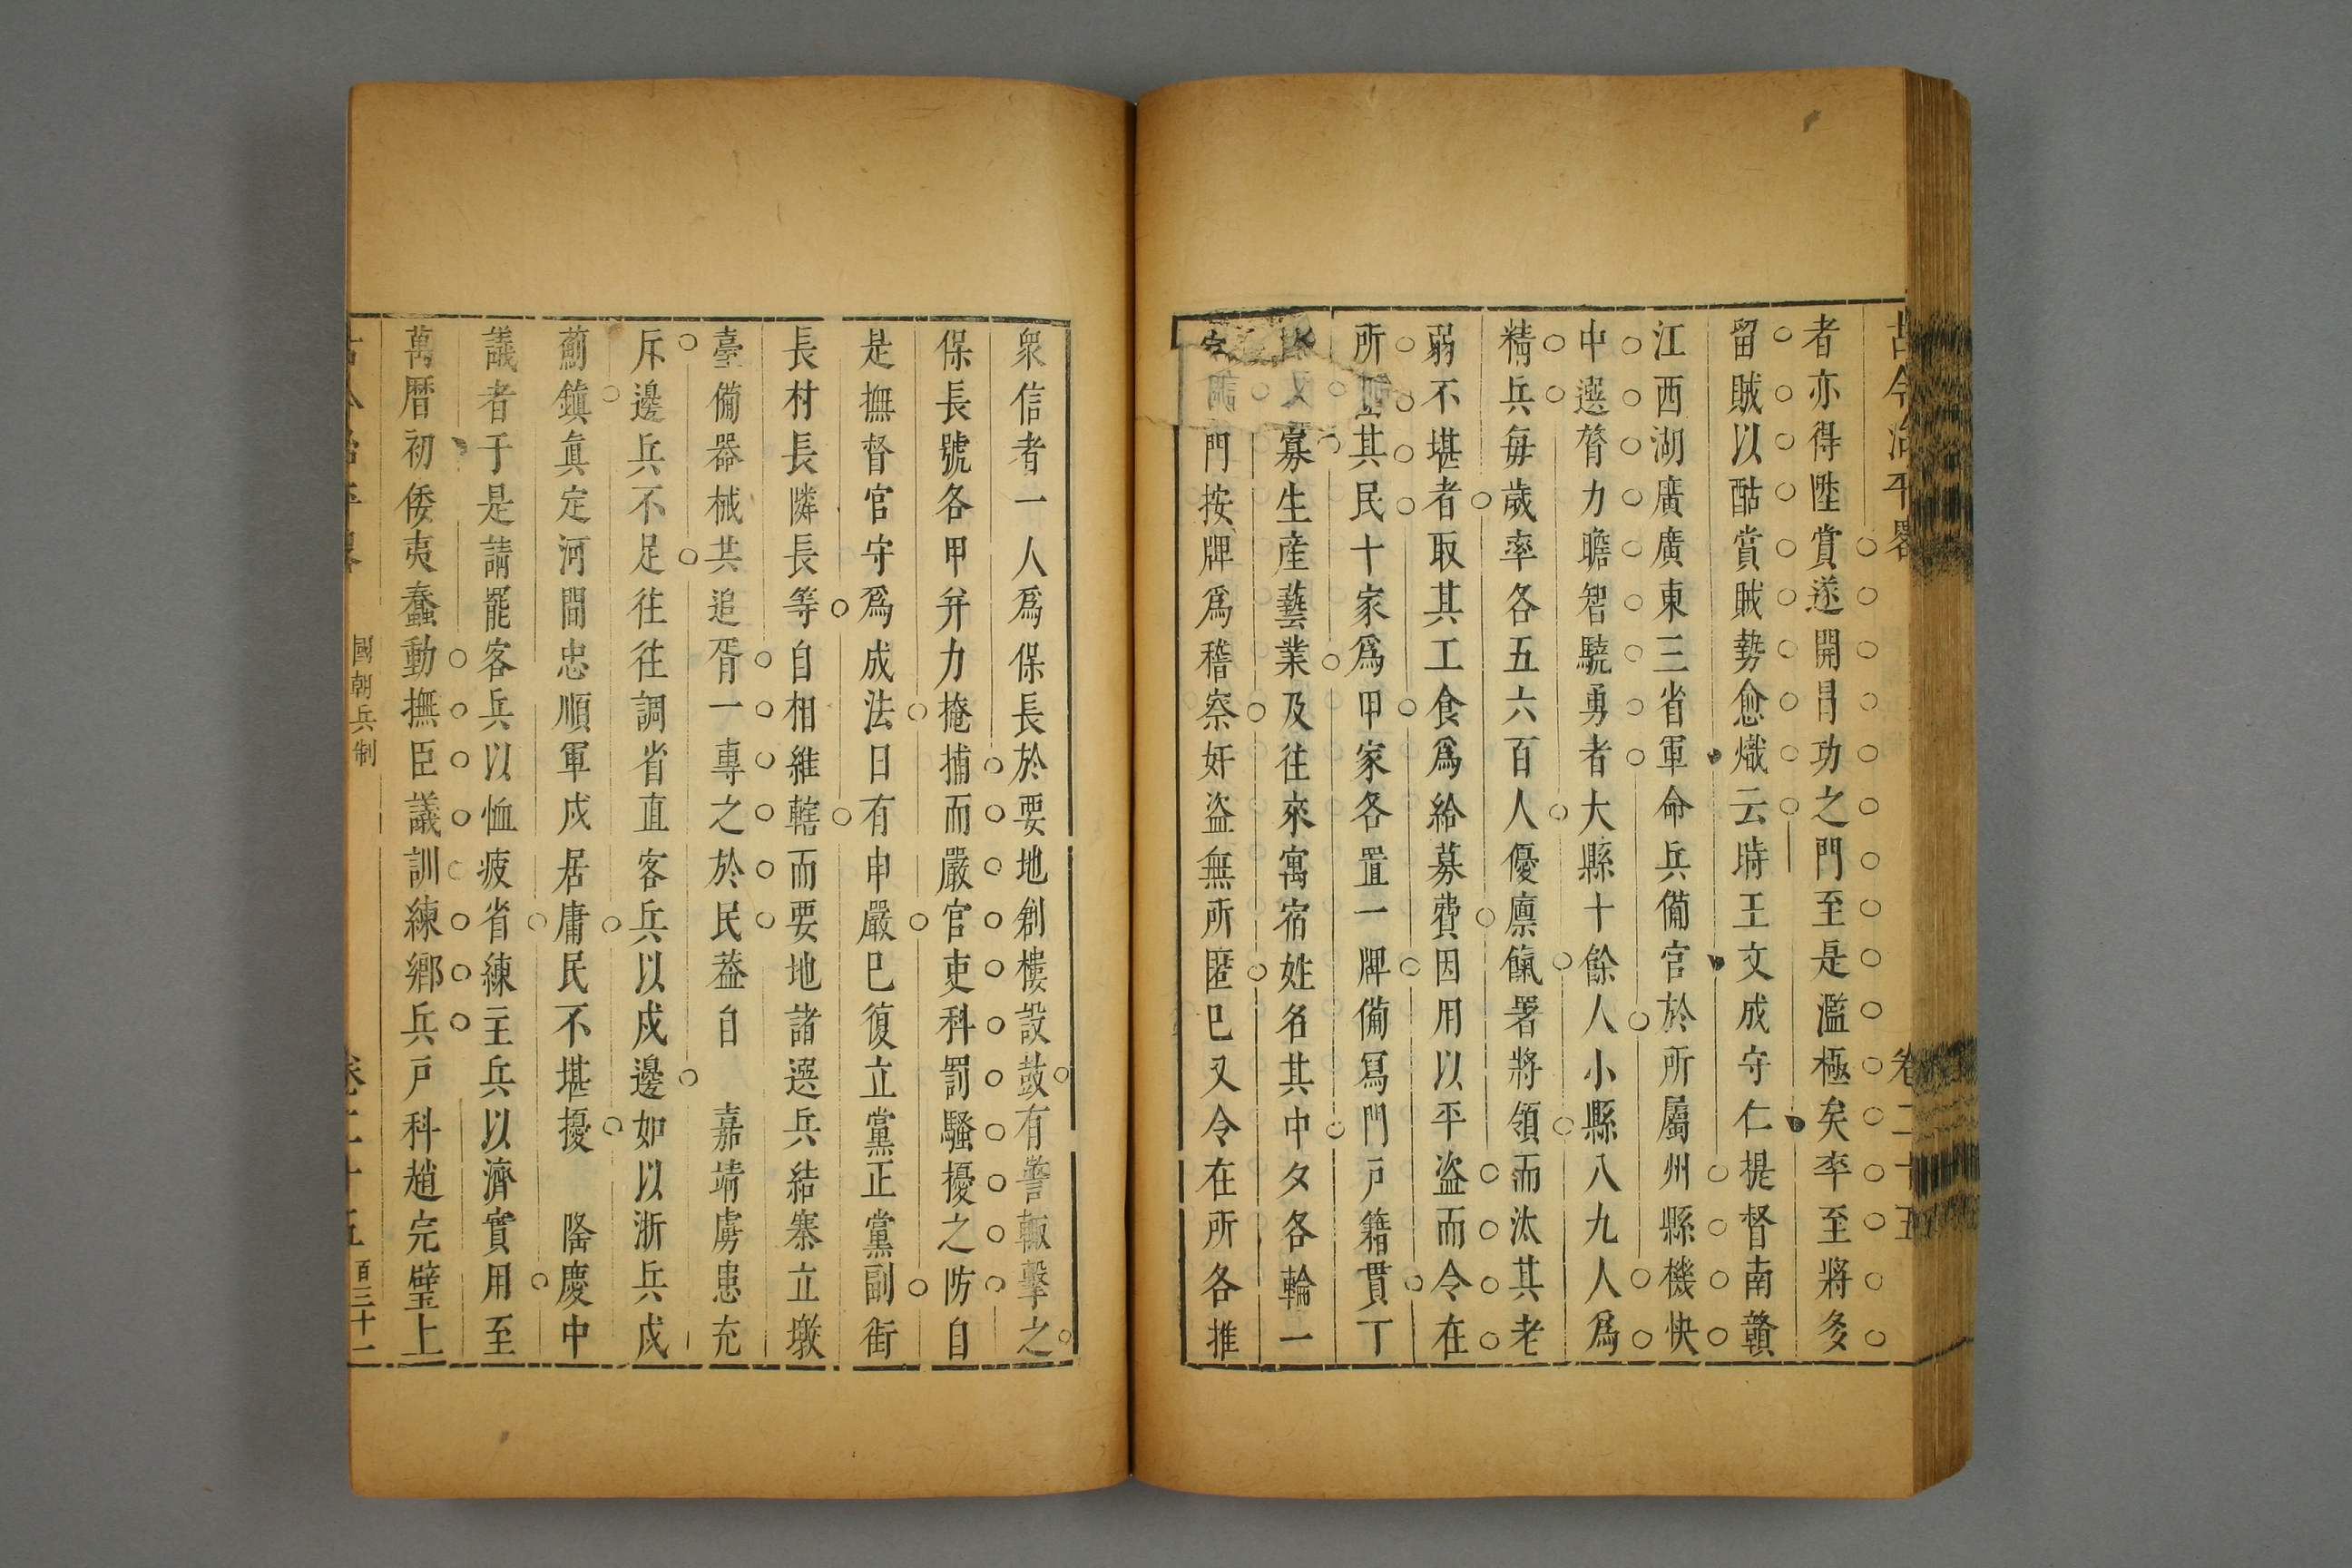 古今治平畧 卷二十五
者亦得陞賞遂開冐功之門至是濫極矣李至將多
留賊以酤賞賊勢愈熾云時王文成守仁提督南贛
江西湖廣廣東三省軍命兵備官於所屬州縣機快
中選膂力瞻智驍勇者大縣十餘人小縣八九人爲
精兵每歲率各五六百人優廪餼署將領而汰其老
弱不堪者取其工食爲給募費因用以平盜而令在
所其民十家爲甲家各置一牌備冩門戸籍貫丁
又寡生産藝業及往來寓宿姓名其中夕各輪一
門按牌爲稽察奸盜無所匿巳又令在所各推
衆信者一人爲保長於要地創樓設鼓有警輙擊之
保長號各甲并力掩捕而嚴官吏科罰騷擾之防自
是撫督官守爲成法日有申嚴巳復立黨正黨副街
長村長隣長等自相維轄而要地諸選兵結寨立墩
臺備器械共追胥一專之於民葢自 嘉靖虜患充
斥邊兵不足徃徃調省直客兵以戍邊如以浙兵戍
薊鎮眞定河間忠順軍戍居庸民不堪擾 隆慶中
議者于是請罷客兵以恤疲省練主兵以濟實用至
萬曆初倭夷蠢動撫臣議訓練鄉兵戸科趙完璧上
古今治平畧 國朝兵制 卷二十五 百三十一